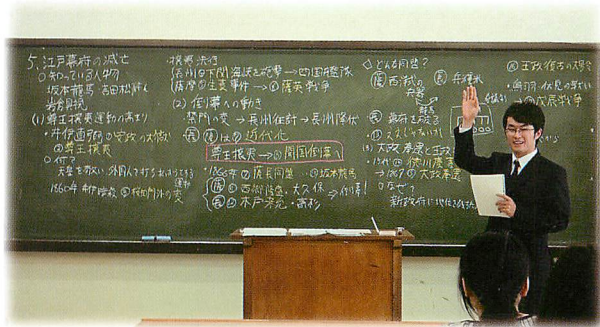 5. 江戸幕府の滅亡
○知っている人物
坂本龍馬・吉田松陰
岩倉具視
(1) 尊王攘夷運動の高まり
・井伊直弼 安政の大獄
尊王攘夷
○何?
1860年 桜田門外の変
・攘夷決行
長州 下関海峡を砲撃→四国艦隊
薩摩 生麦事件→薩英戦争
(2) 倒幕への動き
禁門の変→長州征討→長州降伏
近代化
尊王攘夷→開国倒幕へ
1866年 薩長同盟 坂本龍馬
西郷隆盛・大久保
木戸孝允・高杉
倒幕!
○どんな同盟?
西洋式の
兵器
兵糧米
幕府を
ええじゃないか
(3) 大政奉還と王政
15代 徳川慶喜
→1867 大政奉還
○なぜ?
新政府に
王政復古の大号令
・鳥羽・伏見の戦い
戊辰戦争